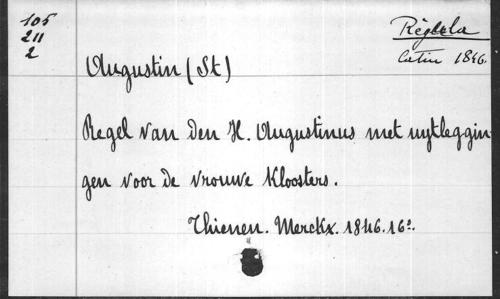 105
211
2
Règula
Latin 1846.
Augustin (St)
Regel van den H. Augustinus met uytleggin
gen voor de vrouwe kloosters.
Thienen. Merckx. 1846. 16º.